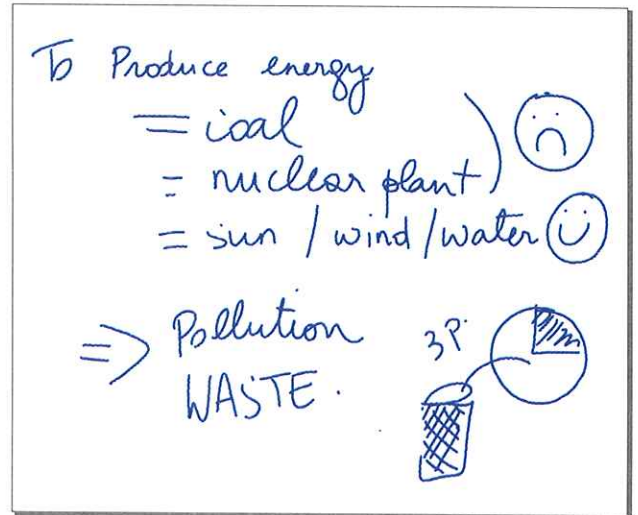 To Produce energy
= coal
= nuclear plant
= sun / wind / water
=> Pollution
WASTE.
3P.